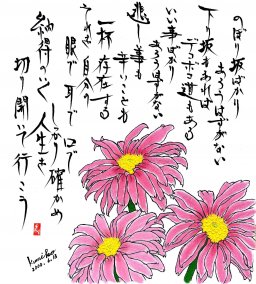 のぼり坂ばかり
あろうはずがない
下り坂もあれば
デコボコ道もある
いい事ばかり
あろうはずがない
悲しい事も
辛いことも
一杯存在する
それを自分の
眼で耳で口で
しっかり確かめ
納得のいく人生を
切り開いて行こう